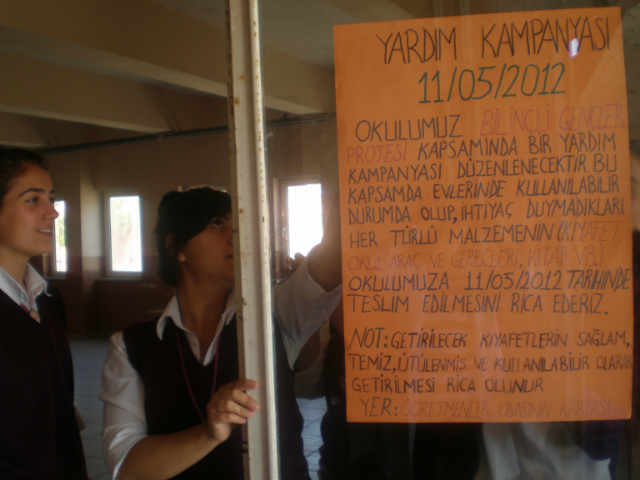 YARDIM KAMPANYASI
11/05/2012
OKULUMUZ BİLİNÇLİ GENÇLER
PROJESİ KAPSAMINDA BİR YARDIM
KAMPANYASI DÜZENLENECEKTİR. BU
KAPSAMDA EVLERİNDE KULLANILABİLİR
DURUMDA OLUP, İHTİYAÇ DUYMADIKLARI
HER TÜRLÜ MALZEMENİN (KIYAFET,
OKUL ARAÇ VE GEREÇLERİ, KİTAP VB.)
OKULUMUZA 11/05/2012 TARİHİNDE
TESLİM EDİLMESİNİ RİCA EDERİZ.
NOT: GETİRİLECEK KIYAFETLERİN SAĞLAM,
TEMİZ, ÜTÜLENMİŞ VE KULLANILABİLİR OLARAK
GETİRİLMESİ RİCA OLUNUR
YER: ÖĞRETMENLER ODASININ KARŞISI